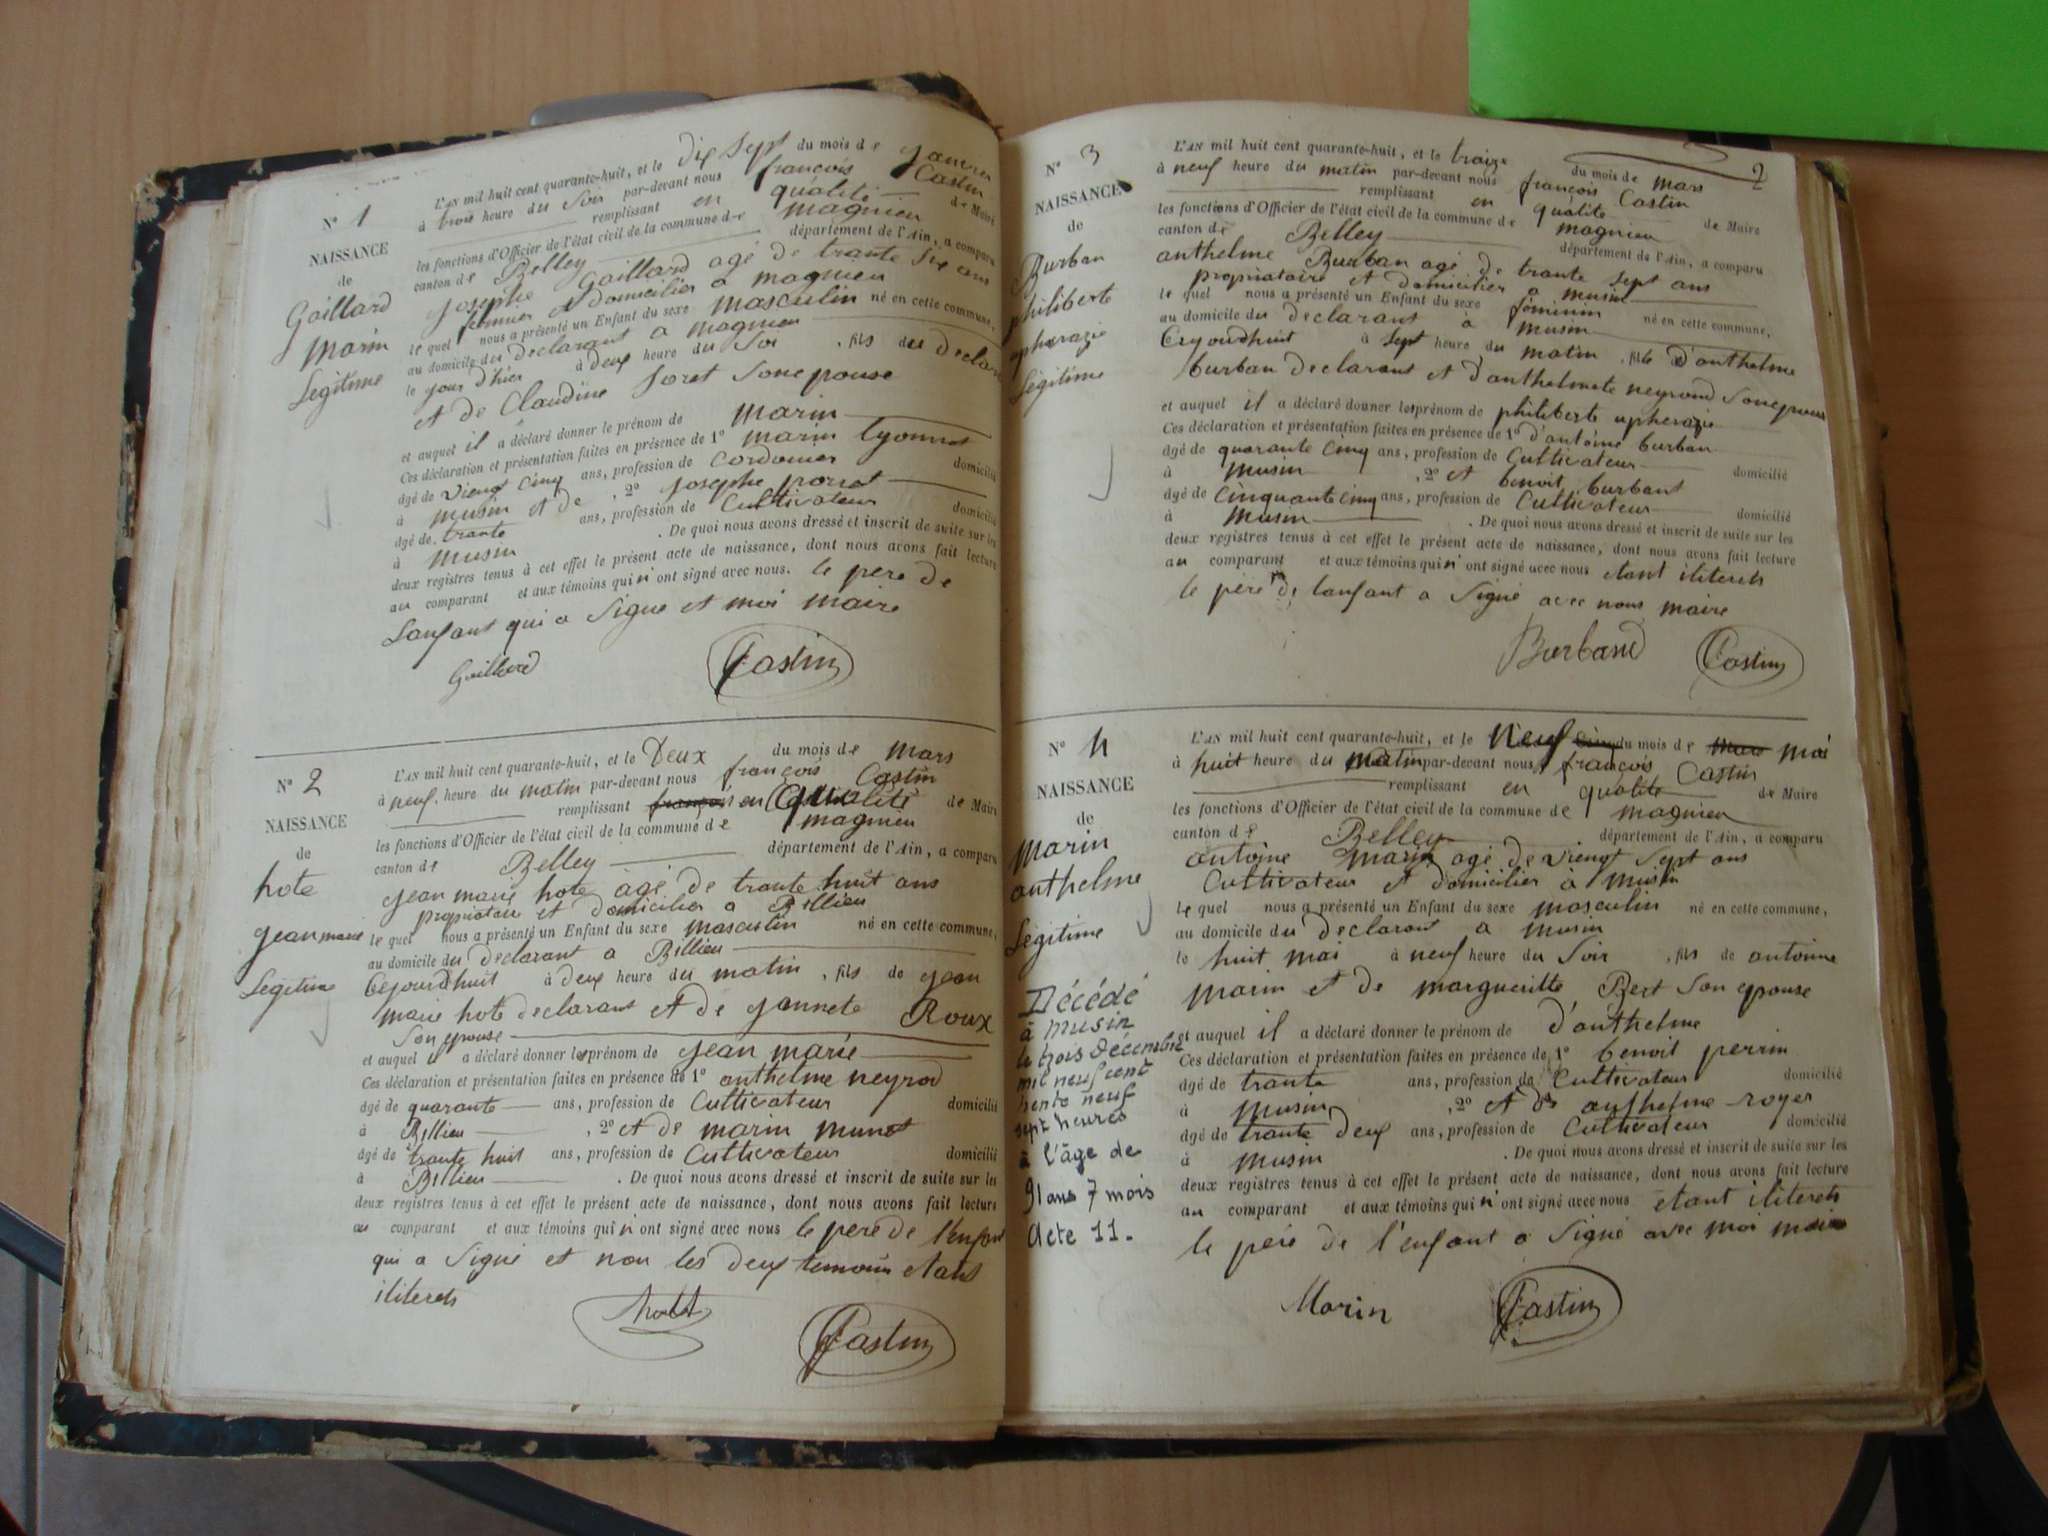 N° 1
NAISSANCE
de
Gaillard
Marin
Légitime
L'AN mil huit cent quarante-huit, et le dix Sept du mois de janvier
à trois heure du Soir par-devant nous françois Castin
remplissant en qualité de Maire
les fonctions d'Officier de l'état civil de la commune de magnieu
canton de Belley département de l'Ain, a comparu
josephe Gaillard agé de trante six ans
fermier et domicilier a magnieu
le quel nous a présenté un Enfant du sexe masculin né en cette commune,
au domicile du declarant a magnieu
le jour d'hier à deux heure du Soir , fils du declarant
et de Claudine Soret Son epouse
et auquel il a déclaré donner le prénom de Marin
Ces déclaration et présentation faites en présence de 1° marin lyonnet
âgé de viengt cinq ans, profession de Cordonier domicilié
à musin et de , 2° josephe porret
âgé de trante ans, profession de Cultivateur domicilié
à Musin . De quoi nous avons dressé et inscrit de suite sur les
deux registres tenus à cet effet le présent acte de naissance, dont nous avons fait lecture
au comparant et aux témoins qui n' ont signé avec nous. le pere de
Lanfant qui a Signe et moi maire
Gaillard Castin
N° 2
NAISSANCE
de
hote
jean marie
Légitime
L'AN mil huit cent quarante-huit, et le Deux du mois de Mars
à neuf heure du matin par-devant nous françois Castin
remplissant françois en Qualité de Maire
les fonctions d'Officier de l'état civil de la commune de magnieu
canton de Belley département de l'Ain, a comparu
jean marie hote agé de trante huit ans
propriataire et domicilier a Billieu
le quel nous a présenté un Enfant du sexe masculin né en cette commune,
au domicile du declarant a Billieu
Cejourdhuit à deux heure du matin , fils de jean
marie hote declarant et de jannete Roux
Son epouse
et auquel il a déclaré donner les prénom de jean marie
Ces déclaration et présentation faites en présence de 1° anthelme neyrod
âgé de quarante ans, profession de Cultivateur domicilié
à Billieu , 2° et de marin munet
âgé de trante huit ans, profession de Cultivateur domicilié
à Billieu . De quoi nous avons dressé et inscrit de suite sur les
deux registres tenus à cet effet le présent acte de naissance, dont nous avons fait lecture
au comparant et aux témoins qui n' ont signé avec nous le pere de l'enfant
qui a Signe et non les deux temoin etant
iliterets
hote Castin
2
N° 3
NAISSANCE
de
Burban
philiberte
upherazie
Légitime
L'AN mil huit cent quarante-huit, et le traize du mois de mars
à neuf heure du matin par-devant nous françois Castin
remplissant en qualite de Maire
les fonctions d'Officier de l'état civil de la commune de magnieu
canton de Belley département de l'Ain, a comparu
anthelme Burban agé de trante sept ans
propriataire et domicilier a musin
le quel nous a présenté un Enfant du sexe féminin né en cette commune,
au domicile du declarant à musin
Cejourdhuit à sept heure du matin , fille d'anthelme
burban declarant et d'anthelmete neyrond Son epouse
et auquel il a déclaré donner les prénom de philiberte upherazie
Ces déclaration et présentation faites en présence de 1° d'antoine burban
âgé de quarante cinq ans, profession de Cultivateur domicilié
à musin , 2° et benoit burbant
âgé de cinquante cinq ans, profession de Cultivateur domicilié
à musin . De quoi nous avons dressé et inscrit de suite sur les
deux registres tenus à cet effet le présent acte de naissance, dont nous avons fait lecture
au comparant et aux témoins qui n' ont signé avec nous etant iliterets
le père de lanfant a Signé avec nous maire
Burband Castin
N° 4
NAISSANCE
de
Marin
anthelme
Légitime
Décédé
à musin
le trois décembre
mil neuf cent
trente neuf
sept heures
à l'âge de
91 ans 7 mois
Acte 11.
L'AN mil huit cent quarante-huit, et le Neuf du mois de mars mai
à huit heure du matin par-devant nous françois Castin
remplissant en qualite de Maire
les fonctions d'Officier de l'état civil de la commune de magnieu
canton de Belley département de l'Ain, a comparu
antoine marin agé de viengt Sept ans
Cultivateur et domicilier à musin
le quel nous a présenté un Enfant du sexe masculin né en cette commune,
au domicile du declarant a musin
le huit mai à neuf heure du Soir , fils de antoinne
marin et de margueritte Bert Son epouse
et auquel il a déclaré donner le prénom de d'anthelme
Ces déclaration et présentation faites en présence de 1° benoit perrin
âgé de trante ans, profession de Cultivateur domicilié
à musin , 2° et de anthelme royer
âgé de trante deux ans, profession de Cultivateur domicilié
à musin . De quoi nous avons dressé et inscrit de suite sur les
deux registres tenus à cet effet le présent acte de naissance, dont nous avons fait lecture
au comparant et aux témoins qui n' ont signé avec nous etant iliterets
le père de l'enfant a Signé avec moi maire
Marin Castin